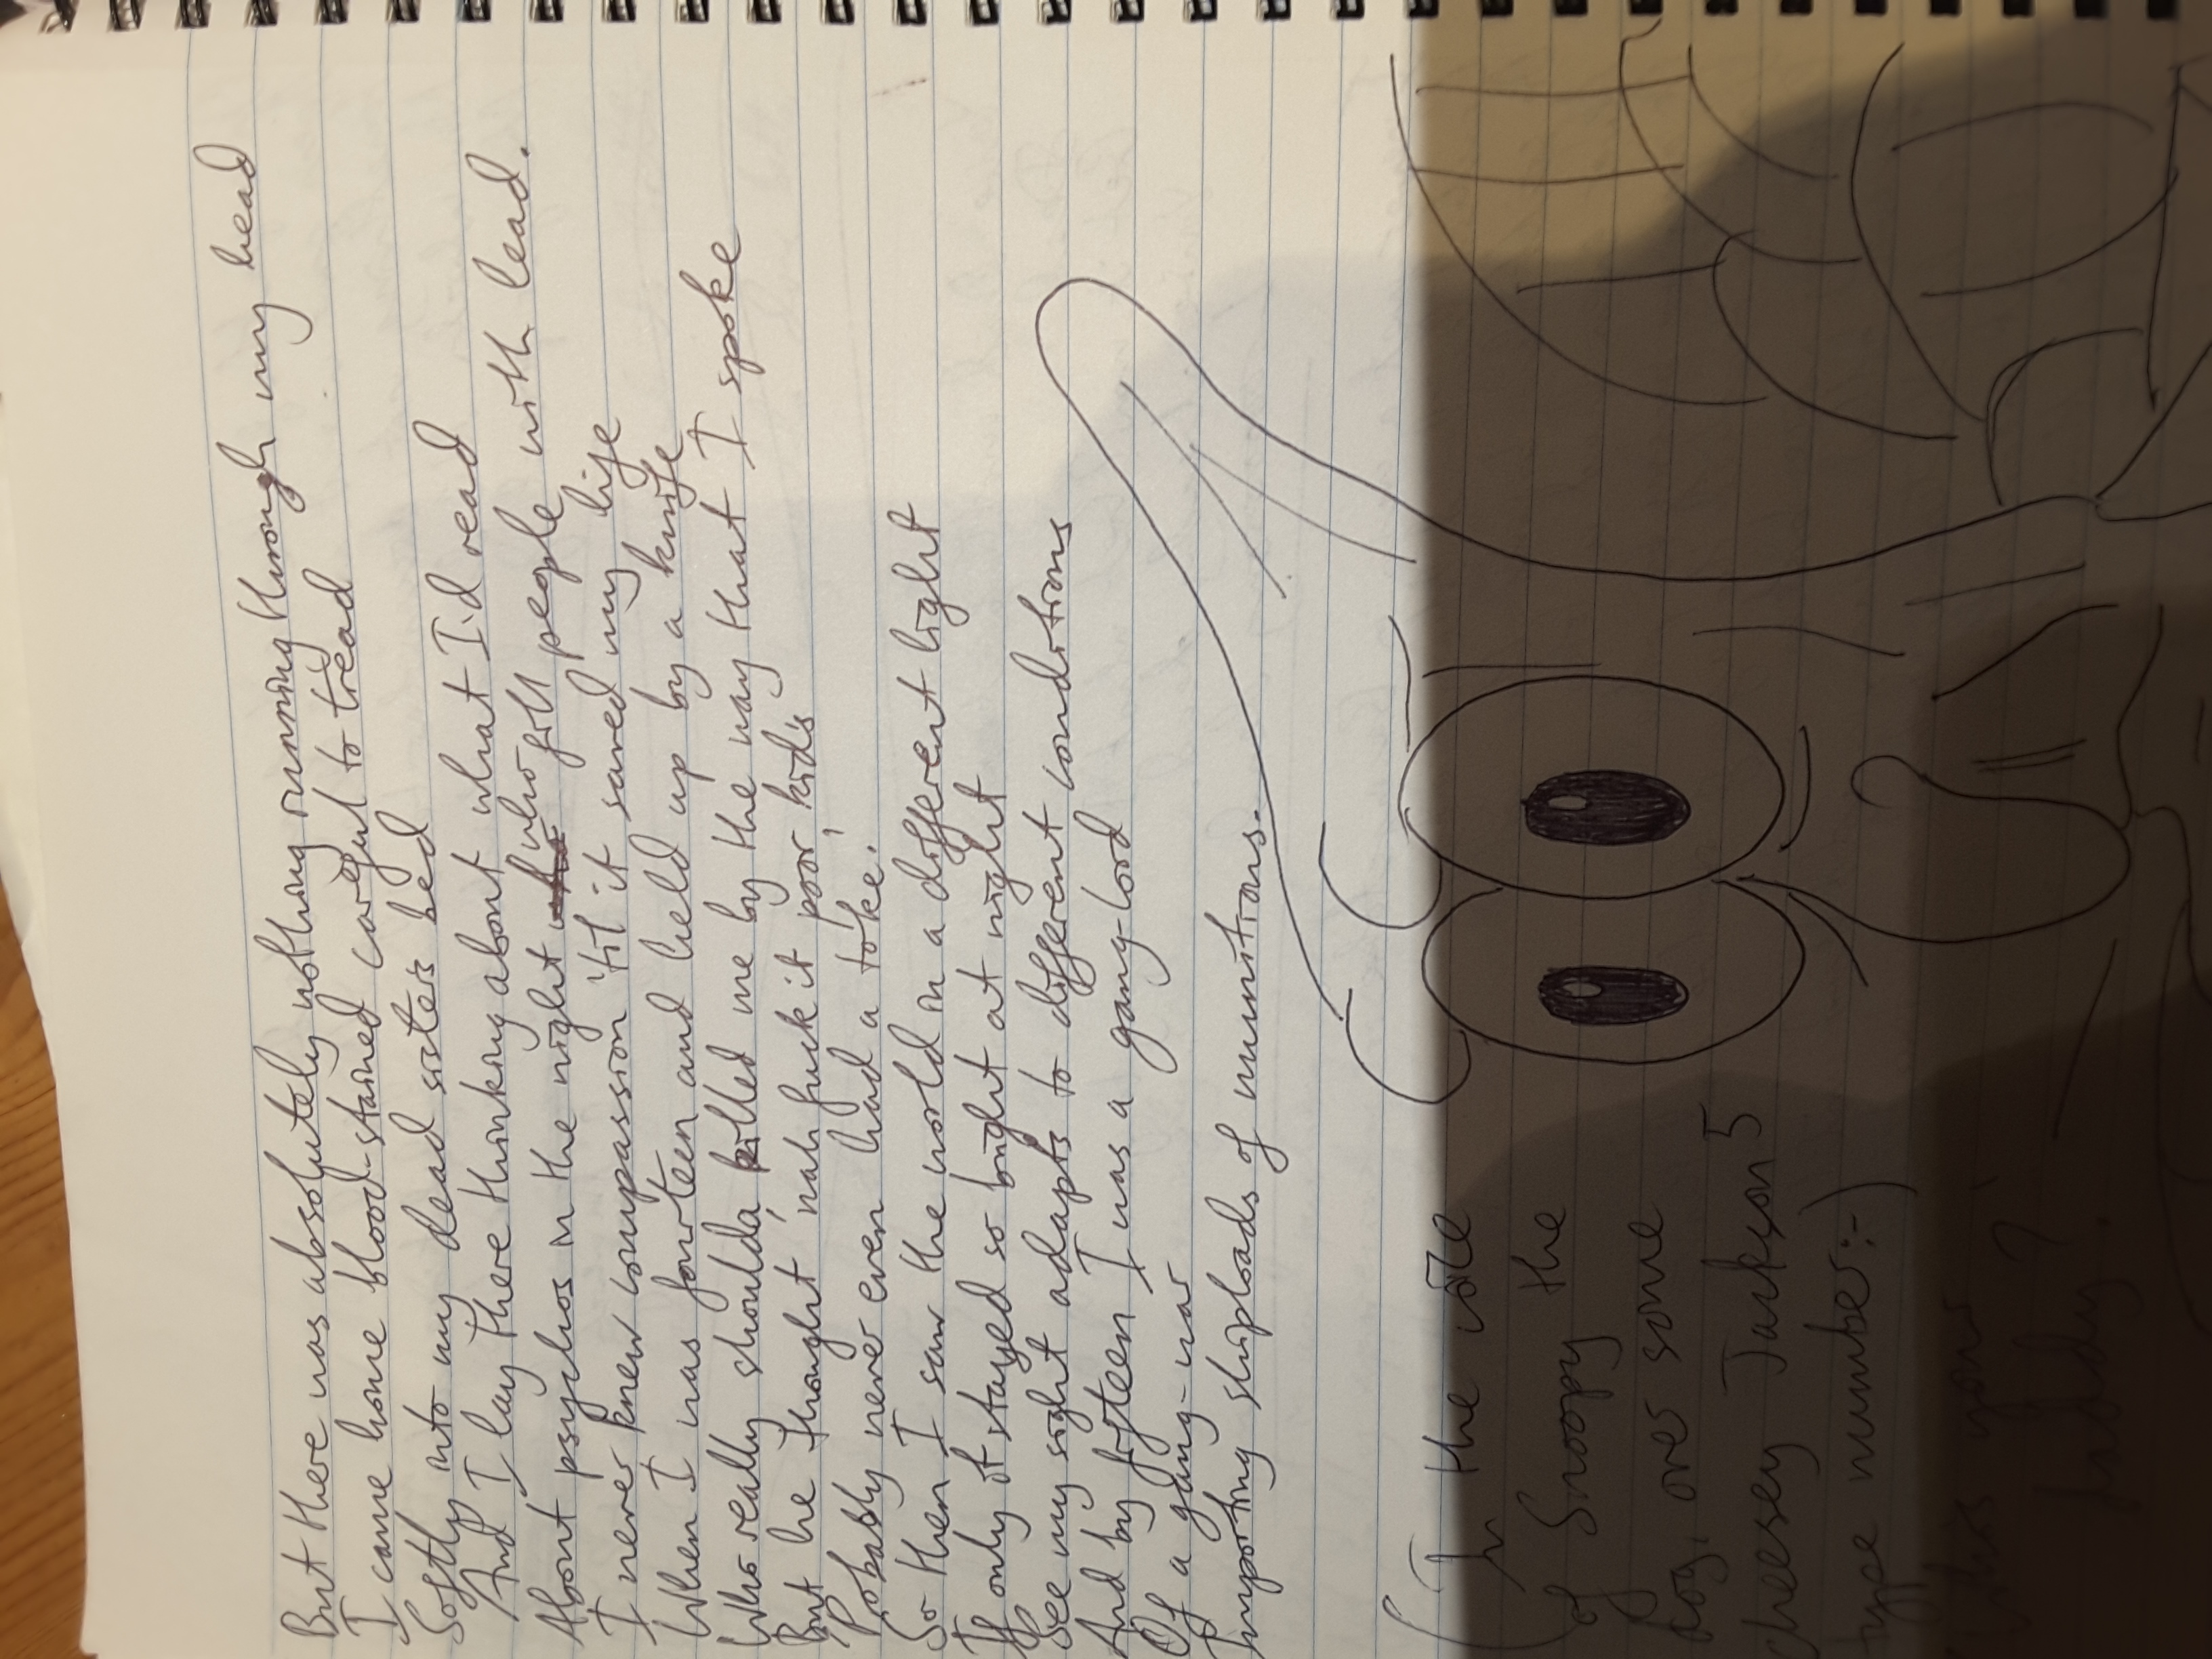 But there was absolutely nothing running through my head
I came home blood-stained careful to tread
Softly into my dead sister's bed
And I lay there thinking about what I'd read
About psychos in the night who fill people with lead.
I never knew compassion 'til it saved my life
When I was fourteen and held up by a knife
Who really shoulda killed me by the way that I spoke
But he thought 'nah fuck it poor kid's
Probably never even had a toke.'
So then I saw the world in a different light
If only it stayed so bright at night
See my sight adapts to different conditions
And by fifteen I was a gang-lord
Of a gang-war
Importing shiploads of munitions.
(In the voice
of Snoopy the
dog, over some
cheesey Jackson 5
type number:-)
'Who's your
daddy?'